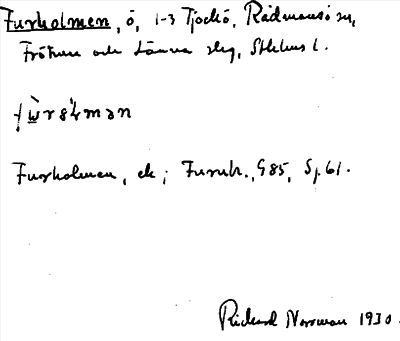 Furholmen, ö, 1-3 Tjockö, Rådmansö sn,
Fröt och Länna slg, Sthlms l.
Furholmen, ek; Furuh., G85, Sp. 61.
Rickard Norrman 1930.